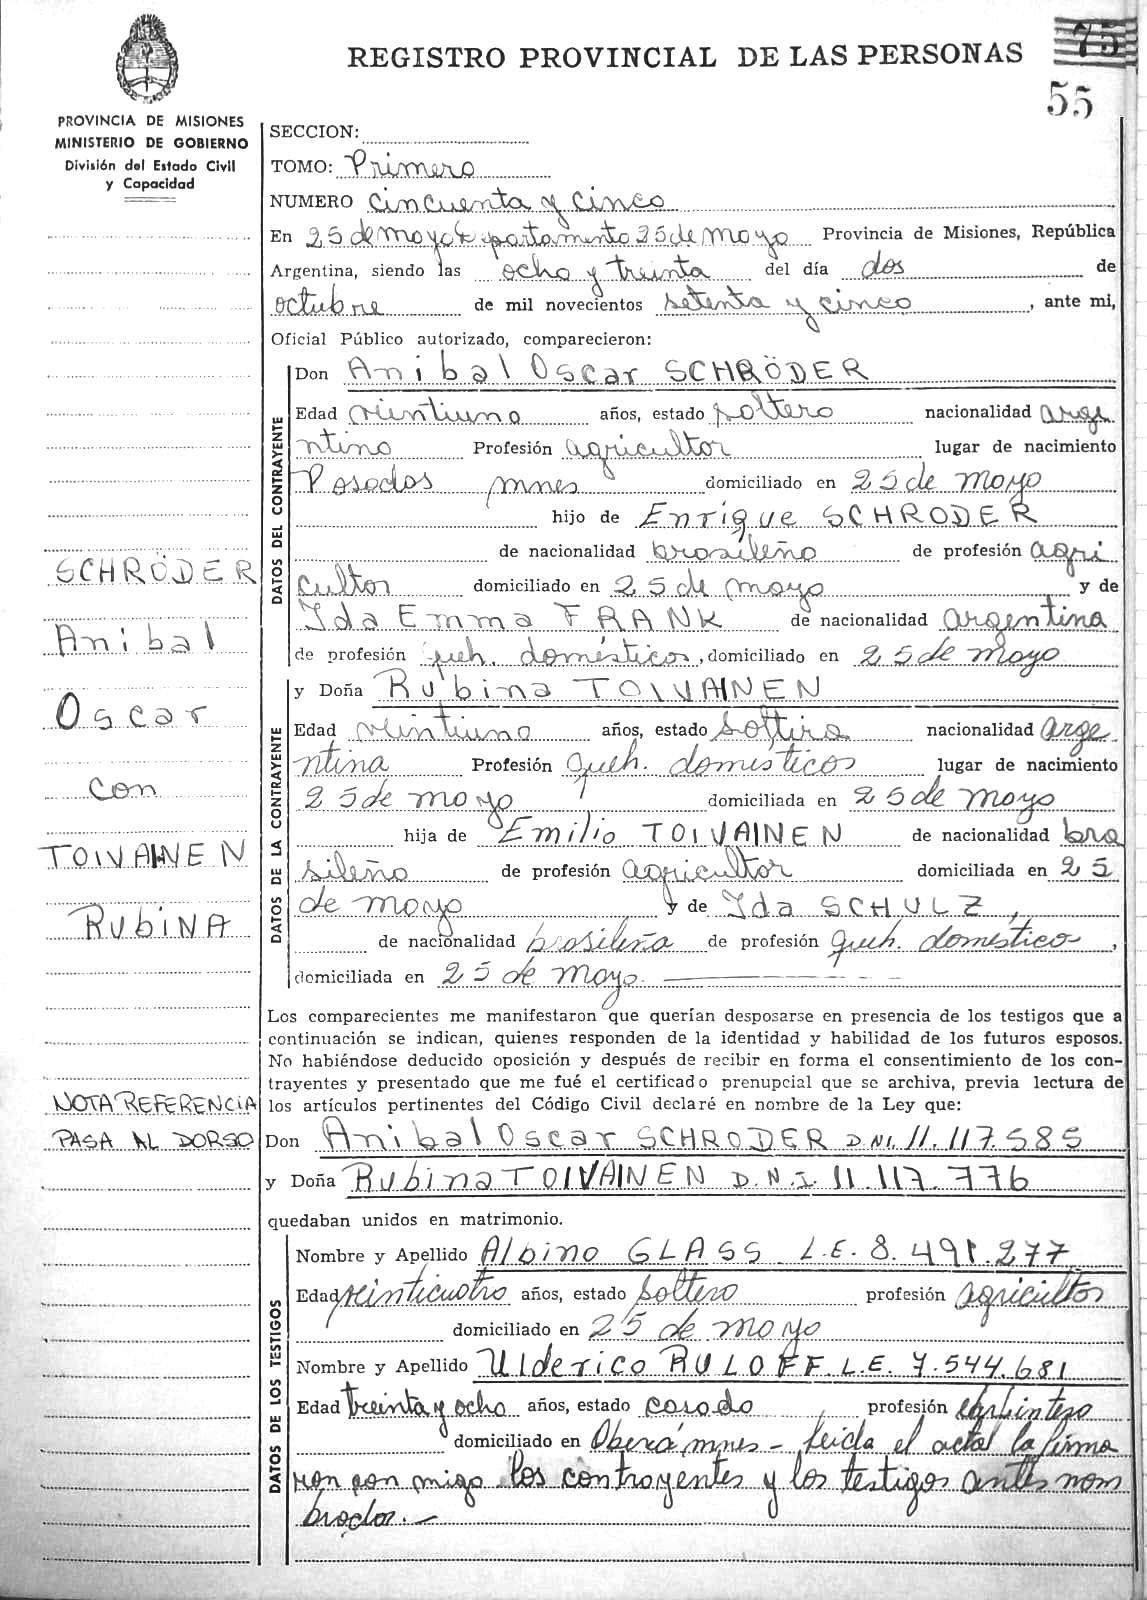 REGISTRO PROVINCIAL DE LAS PERSONAS
75
55
PROVINCIA DE MISIONES
MINISTERIO DE GOBIERNO
División del Estado Civil
y Capacidad
SCHRÖDER
Anibal
Oscar
con
TOIVAINEN
RUBINA
NOTA REFERENCIA
PASA AL DORSO
SECCION:
TOMO: Primero
NUMERO cincuenta y cinco
En 25 de mayo departamento 25 de mayo Provincia de Misiones, República
Argentina, siendo las ocho y treinta del día dos de
octubre de mil novecientos setenta y cinco, ante mi,
Oficial Público autorizado, comparecieron:
DATOS DEL CONTRAYENTE
Don Anibal Oscar SCHRÖDER
Edad vientiuno años, estado soltero nacionalidad arge
ntino Profesión agricultor lugar de nacimiento
Posadas mnes domiciliado en 25 de mayo
hijo de Enrique SCHRODER
de nacionalidad brasileño de profesión agri
cultor domiciliado en 25 de mayo y de
Ida Emma FRANK de nacionalidad argentina
de profesión queh. domésticos, domiciliado en 25 de mayo
DATOS DE LA CONTRAYENTE
y Doña Rubina TOIVAINEN
Edad vientiuno años, estado soltera nacionalidad arge
ntina Profesión queh. domésticos lugar de nacimiento
25 de mayo domiciliado en 25 de mayo
hija de Emilio TOIVAINEN de nacionalidad bra
sileño de profesión agricultor domiciliada en 25
de mayo y de Ida SCHULZ,
de nacionalidad brasileña de profesión queh. doméstico,
domiciliada en 25 de mayo.
Los comparecientes me manifestaron que querían desposarse en presencia de los testigos que a
continuación se indican, quienes responden de la identidad y habilidad de los futuros esposos.
No habiéndose deducido oposición y después de recibir en forma el consentimiento de los con-
trayentes y presentado que me fué el certificado prenupcial que se archiva, previa lectura de
los artículos pertinentes del Código Civil declaré en nombre de la Ley que:
Don Anibal Oscar SCHRODER D.NI. 11.117.585
y Doña Rubina TOIVAINEN D.N.I 11.117.776
quedaban unidos en matrimonio.
DATOS DE LOS TESTIGOS
Nombre y Apellido Albino GLASS L.E. 8.491.277
Edad veinticuatro años, estado soltero profesión agricultor
domiciliado en 25 de mayo
Nombre y Apellido Ulderico RULOFF L.E. 7.544.681
Edad treinta y ocho años, estado casado profesión carpintero
domiciliado en Oberá mnes - leida el acta la firma
ron con migo los contrayentes y los testigos antes nom
brados.-